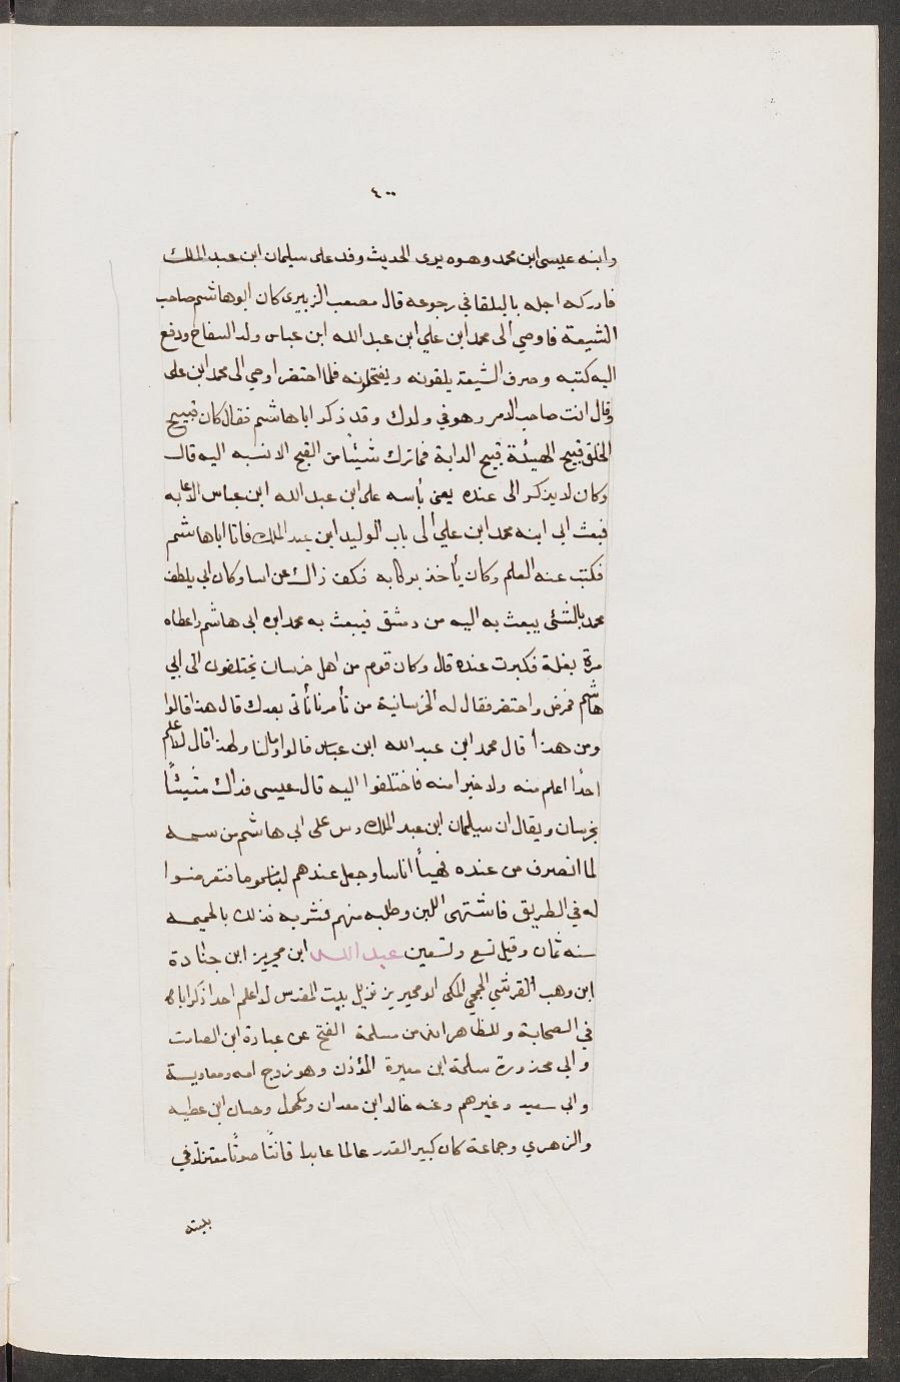 ٤٠٠
وابنه عيسى ابن محمد وهوه يروى الحديث وفد على سيلمان ابن عبد الملك
فادركه اجله بالبلقا في رجوعه قال مصعب الزبيرى كان ابو هاشم صاحب
الشيعة فاوصي الى محمد ابن علي ابن عبد الله ابن عباس ولد السفاح ودفع
اليه كتبه وصرف الشيعة يلقونه فلما احتضر اوصي الى محمد ابن على
وقال انت صاحب الامر وهو في ولدك وقد ذكر اباهاشم فقال كان قبيح
الخلق قبيح الهيئة قبيح الدابة فما ترك شيئا من القبح الا نسبه اليه قال
وكان لا يذكر الى عنده يعني بأسه على ابن عبد الله ابن عباس الا عابه
فبعث ابي ابنه محمد ابن علي الى باب الوليد ابن عبد الملك فاتا اباهاشم
فكتب عنه العلم وكان يأخذ بركابه فكف زالك عن اسا وكان ابي يلطف
محمد بالشئى يبعث به اليه من دمشق فيبعث به محمد ابو ابي هاشم واعطاه
مرة بغلة فكبرت عنده قال وكان قوم من اهل خرسان يختلفون الى ابي
هاشم فمرض واحتضر فقال له الخرسانية من تأمرنا نأتى بعدك قال هذا قالوا
ومن هذا قال محمد ابن عبد الله ابن عباس قالوا ومالنا ولهذا قال لا اعلم
احدا اعلم منه ولا خيرا منه فاختلفوا اليه قال عيسى فذاك
بخرسان ويقال ان سيلمان ابن عبد الملك دس على ابي هاشم من سمه
لما انصرف من عنده فهيأ اناسا وجعل عندهم
له في الطريق فاشتهى اللبن وطلبه منهم فشربه فذلك بالحميمه
سنه ثمان وقيل تسع وتسعين عبد الله ابن محيريز ابن جنادة
ابن وهب القرشي الجمحي المكى ابو محيريز نزيل بيت المقدس لا اعلم احدا ذكر اباه
في الصحابة والظاهر انه من مسلمة الفتح عن عبادة ابن الصامت
وابي محذورة سلمة ابن معيرة المؤذن وهو زوج امه ومعاوية
وابي سعيد وغيرهم وعنه خالد ابن معدان ومكحول وحسان ابن عطيه
والزهري وجماعة كان كبير القدر عالما عابدا قانتا في
بيته